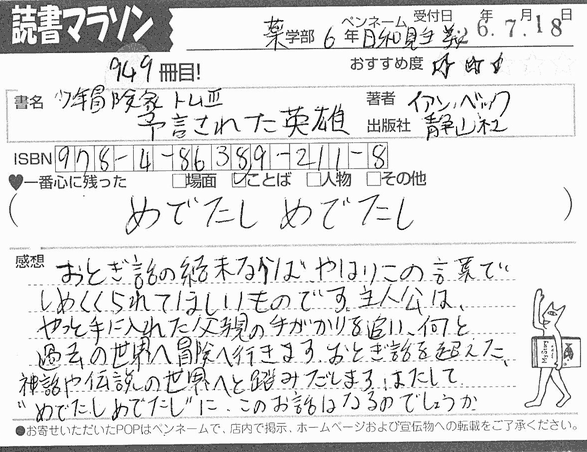 読書マラソン
薬学部 6年 ペンネーム 日和見主義 受付日 6.年7.月18日
949冊目! おすすめ度
書名 少年冒険家トムⅢ 著者 イアン・ベック
予言された英雄 出版社 静山社
ISBN 978-4-86389-211-8
♥一番心に残った □場面 ☑ことば □人物 □その他
(めでたし めでたし)
感想 おとぎ話の結末ならば、やはりこの言葉で
しめくくられてほしいものです。主人公は、
やっと手に入れた父親の手がかりを追い、何と
過去の世界へ冒険へ行きます。おとぎ話を超えた、
神話や伝説の世界へと踏みだします。はたして
"めでたしめでたし"に、このお話はなるのでしょうか
●お寄せいただいたPOPはペンネームで、店内で掲示、ホームページおよび宣伝物への転載をご了承ください。